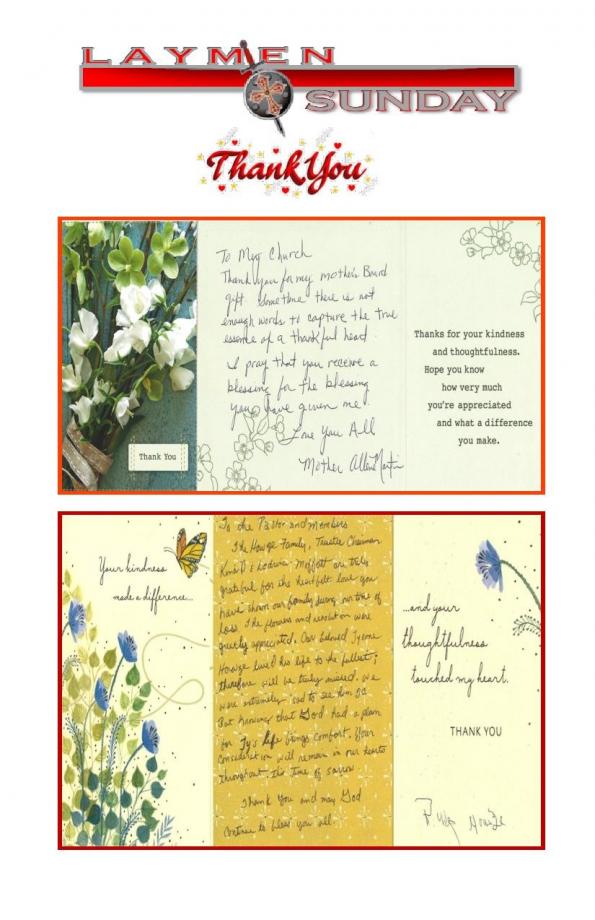 LAYMEN
SUNDAY
Thank You
To My Church
Thank you for my Mother's Board
gift Sometime there is not
enough words to capture the true
essence of a thankful heart
I pray that you receive a
blessing for the blessing
you have given me
Love You All
Mother Allen Martin
Thank You
Thanks for your kindness
and thoughtfulness.
Hope you know
how very much
you're appreciated
and what a difference
you make.
Your kindness
made a difference...
To the Pastor and Members
The Howze Family, Trustee Chairman
Moffett are truly
grateful for the heartfelt love you
have shown our family during our time of
loss. The flowers and resolution were
greatly appreciated. Our beloved Tyrone
Howze lived his life to the fullest;
therefore will be truly missed. We
were extremely sad to see him go
But knowing that God had a plan
for Ty's life brings comfort. Your
consideration will remain in our hearts
throughout this time of sorrow
Thank You and may God
continue to bless you all.
...and your
thoughtfulness
touched my heart.
THANK YOU
Howze